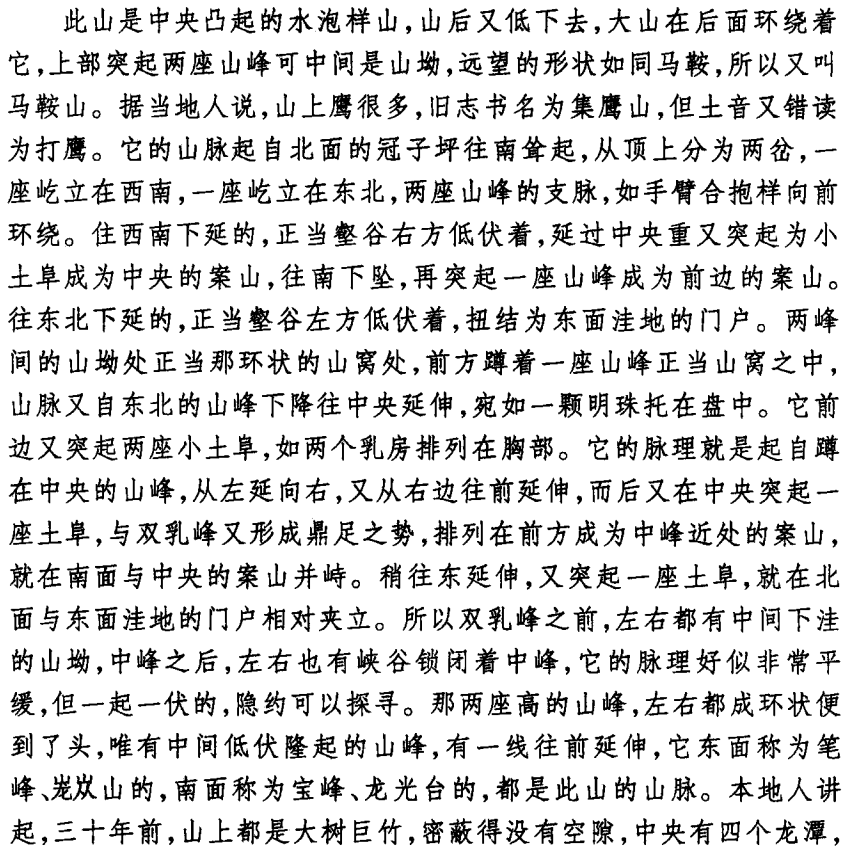 此山是中央凸起的水泡样山,山后又低下去,大山在后面环绕着
它,上部突起两座山峰可中间是山坳,远望的形状如同马鞍,所以又叫
马鞍山。据当地人说,山上鹰很多,旧志书名为集鹰山,但土音又错读
为打鹰。它的山脉起自北面的冠子坪往南耸起,从顶上分为两岔,一
座屹立在西南,一座屹立在东北,两座山峰的支脉,如手臂合抱样向前
环绕。住西南下延的,正当壑谷右方低伏着,延过中央重又突起为小
土阜成为中央的案山,往南下坠,再突起一座山峰成为前边的案山。
往东北下延的,正当壑谷左方低伏着,扭结为东面洼地的门户。两峰
间的山坳处正当那环状的山窝处,前方蹲着一座山峰正当山窝之中,
山脉又自东北的山峰下降往中央延伸,宛如一颗明珠托在盘中。它前
边又突起两座小土阜,如两个乳房排列在胸部。它的脉理就是起自蹲
在中央的山峰,从左延向右,又从右边往前延伸,而后又在中央突起一
座土阜,与双乳峰又形成鼎足之势,排列在前方成为中峰近处的案山,
就在南面与中央的案山并峙。稍往东延伸,又突起一座土阜,就在北
面与东面洼地的门户相对夹立。所以双乳峰之前,左右都有中间下洼
的山坳,中峰之后,左右也有峡谷锁闭着中峰,它的脉理好似非常平
缓,但一起一伏的,隐约可以探寻。那两座高的山峰,左右都成环状便
到了头,唯有中间低伏隆起的山峰,有一线往前延伸,它东面称为笔
峰、㟌㞫山的,南面称为宝峰、龙光台的,都是此山的山脉。本地人讲
起,三十年前,山上都是大树巨竹,密蔽得没有空隙,中央有四个龙潭,